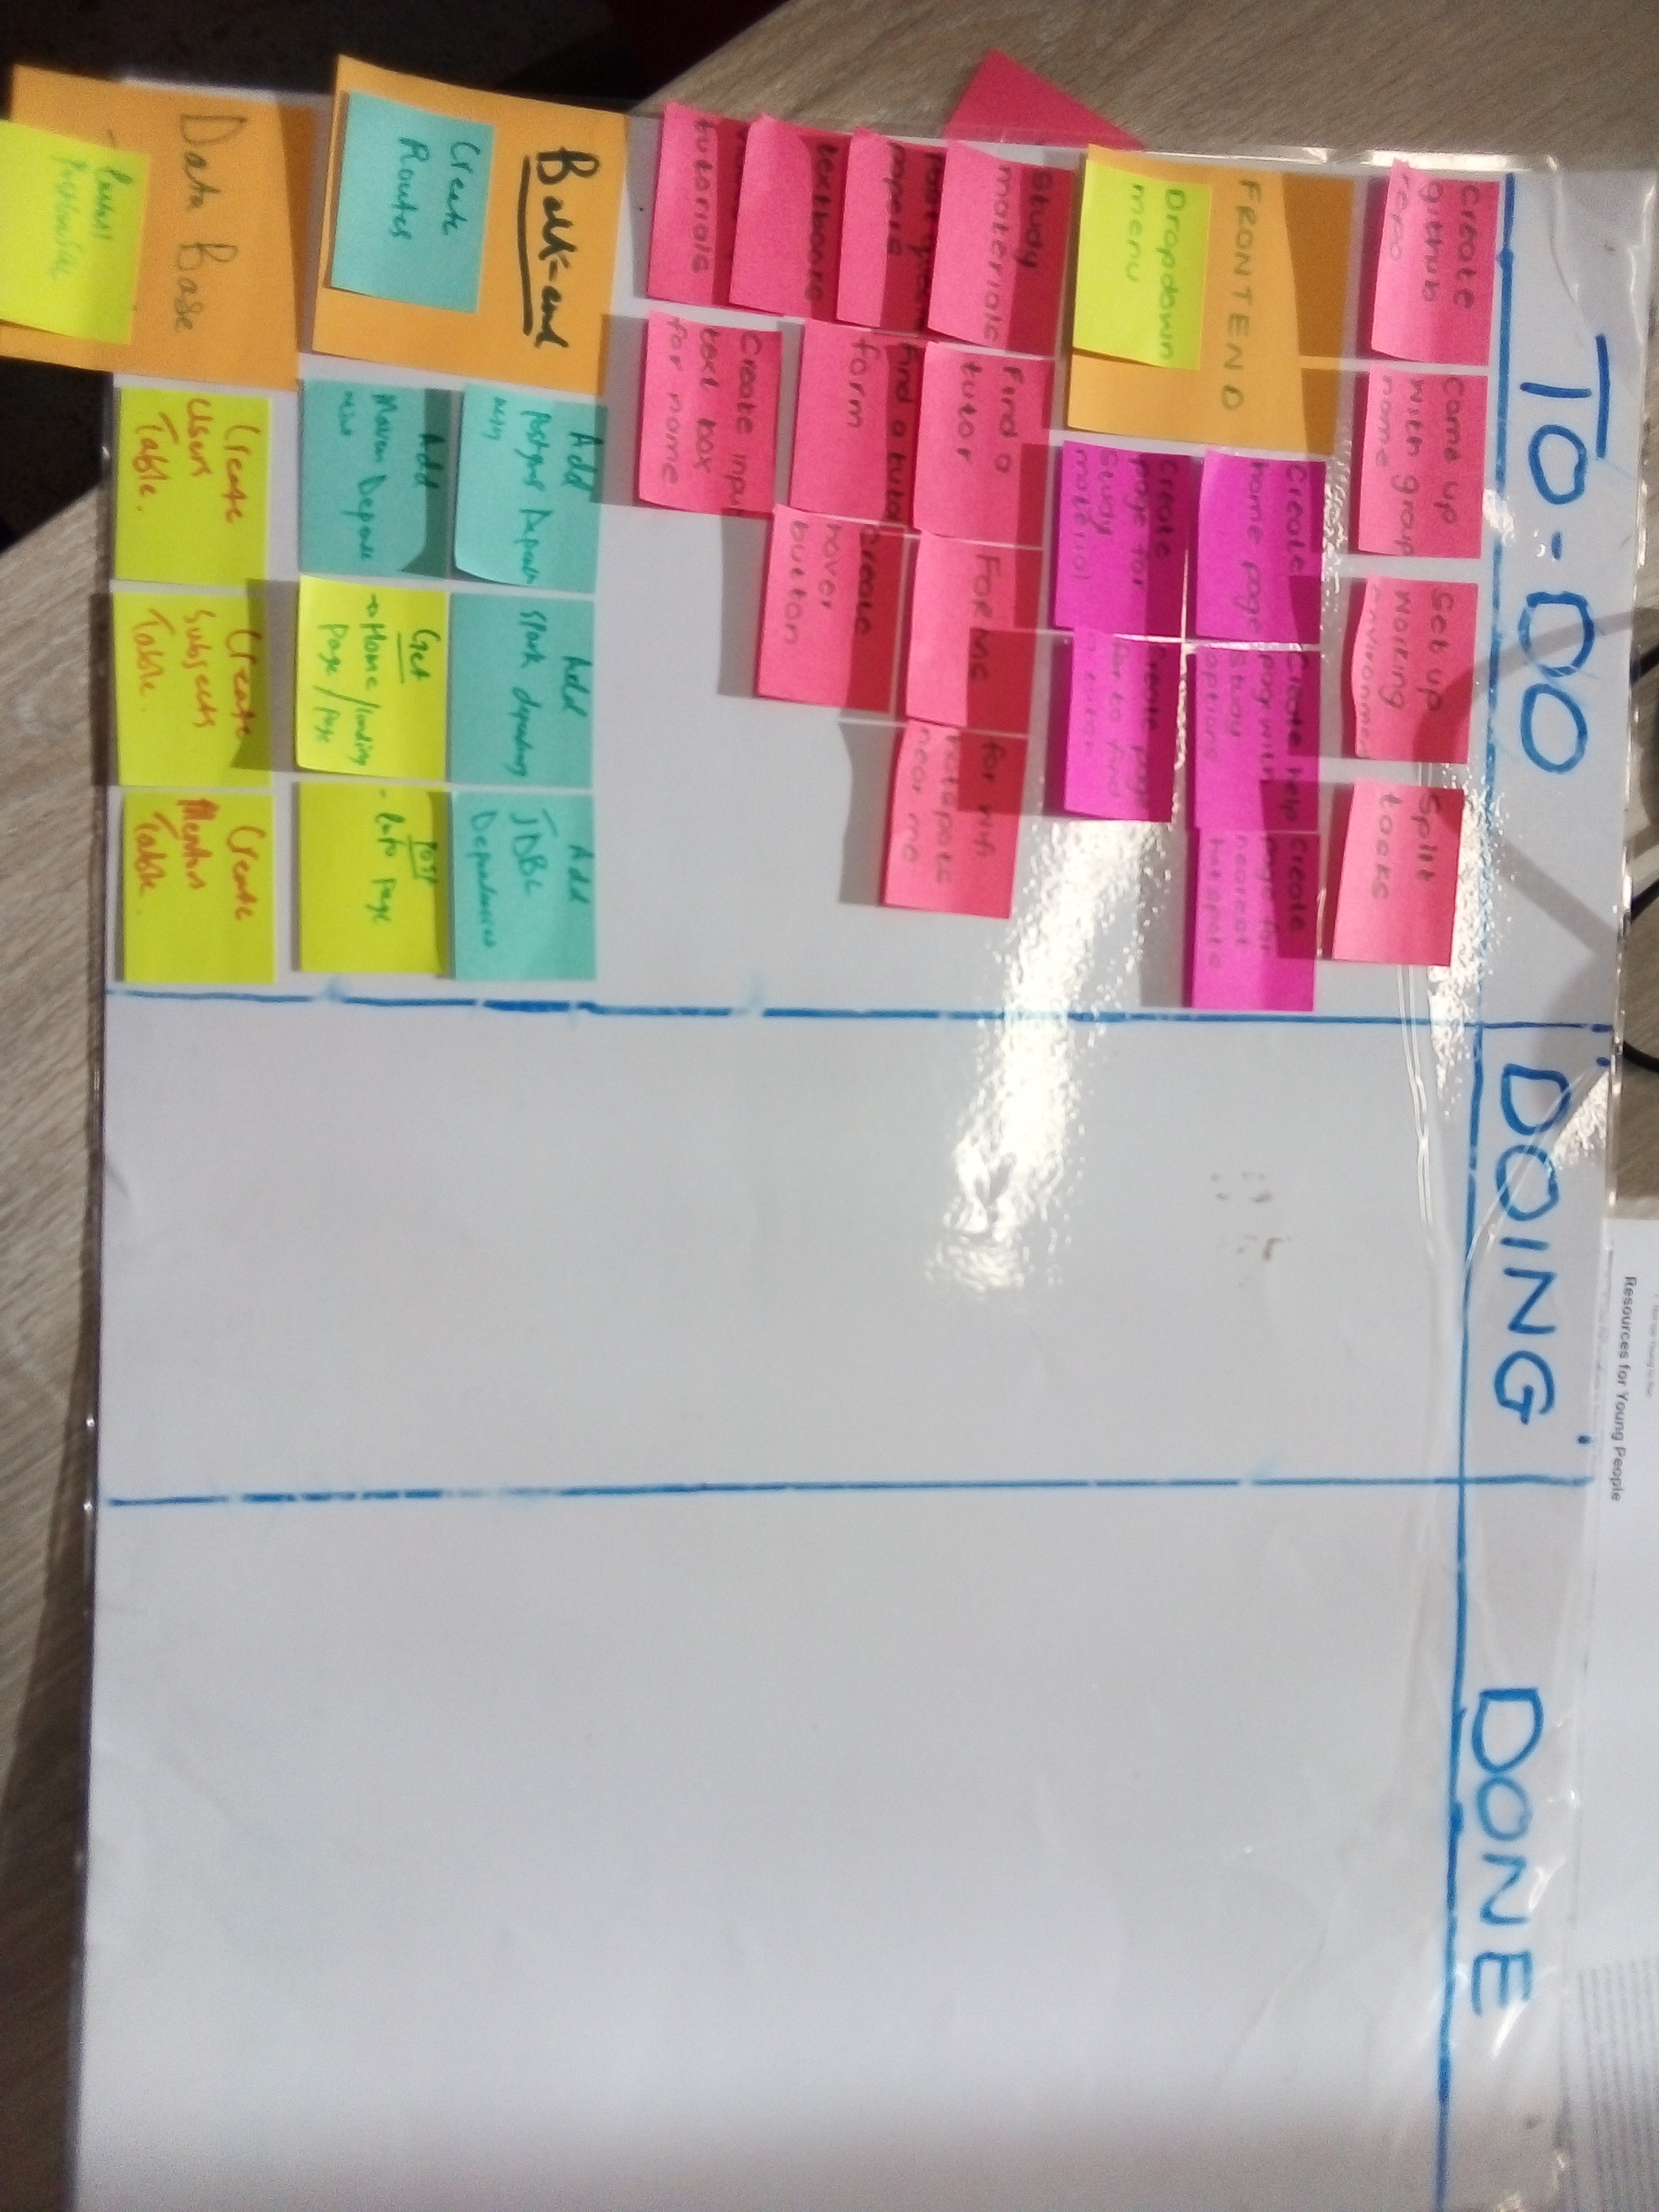 Not too Young to Run
Resources for Young People
TO-DO
DOING
DONE
Create
github
repo
come up
with group
name
Set up
working
environmen
Split
tasks
FRONTEND
Dropdown
menu
Create
home page
Create help
page with
study
options
Create
page for
nearest
hotspots
Create
page for
study
material
Create page
for to find
a tutor
Study
materials
Find a
tutor
FORMS
for wifi
hotspots
near me
papers
Find a tutor
form
Create
hover
button
textbooks
tutorials
Create input
text box
for name
Back-end
Create
Routes
Add
Postgres
Add
Spark dependency
Add
JDBC
Dependencies
Add
Maven
Get
→ Home / landing
page / page
Post
- Info page
Data Base
Create
Users
Table.
Create
Subjects
Table.
Create
Mentors
Table.
Install